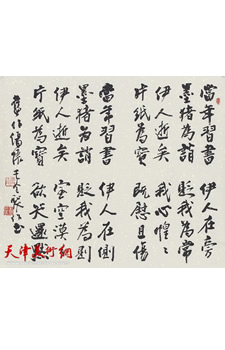 當年習書 伊人在旁
墨豬為誚 貶我為常
伊人逝矣 我心惶惶
片紙為寶 既慰且傷
當年習書 伊人在側
墨豬為誚 貶我為
伊人逝矣 空漠
片紙為寶 欲哭還默
舊作傷懷 書
天津美術網